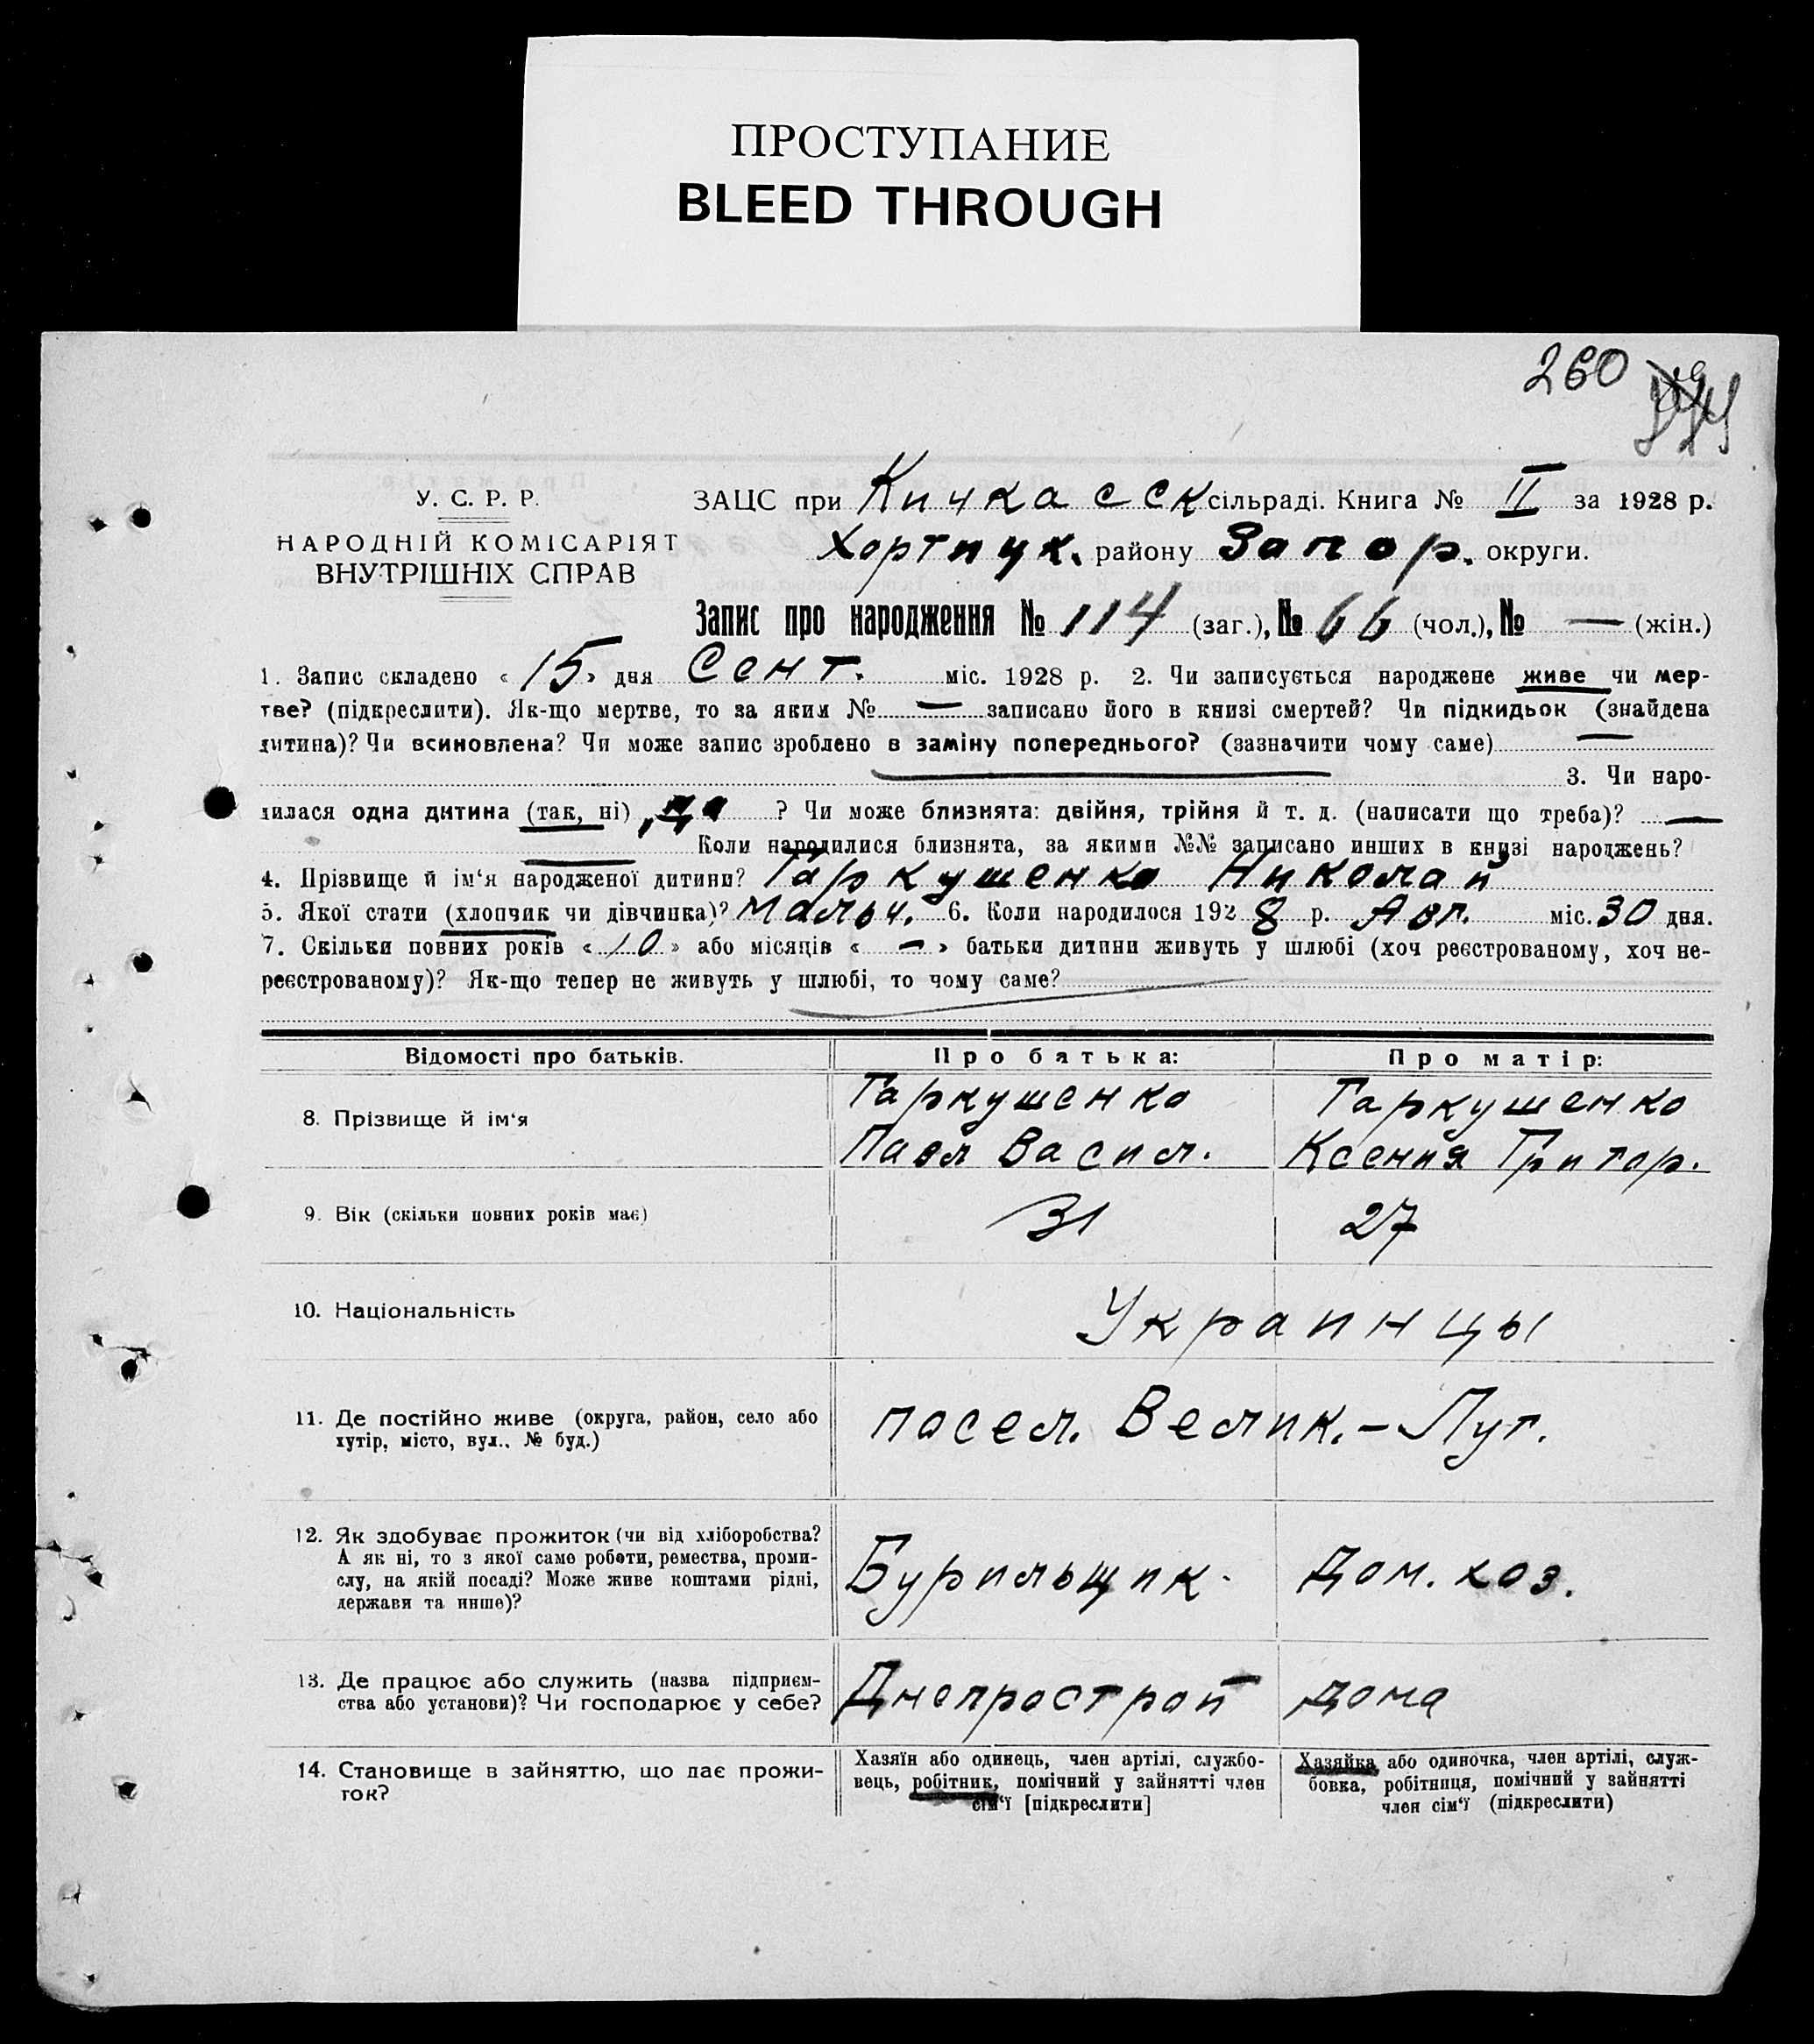 ПРОСТУПАНИЕ
BLEED THROUGH
260
У. С. Р. Р.
НАРОДНІЙ КОМІСАРІЯТ
ВНУТРІШНІХ СПРАВ
ЗАЦС при Кичкасск сільраді. Книга № II за 1928 р.
Хортицк. району Запор. округи.
Запис про народження № 114 (заг.), № 66 (чол.), № — (жін.)
1. Запис складено « 15 » дня Сент. міс. 1928 р. 2. Чи записується народжене живе чи мер-
тве? (підкреслити). Як-що мертве, то за яким № — записано його в книзі смертей? Чи підкидьок (знайдена
дитина)? Чи всиновлена? Чи може запис зроблено в заміну попереднього? (зазначити чому саме) —
3. Чи наро-
дилася одна дитина (так, ні) да ? Чи може близнята: двійня, трійня й т. д. (написати що треба)? —
Коли народилися близнята, за якими №№ записано инших в книзі народжень?
4. Прізвище й ім‘я народженої дитини? Гаркушенко Николай
5. Якої стати (хлопчик чи дівчинка)? мальч. 6. Коли народилося 1928 р. Авг. міс. 30 дня.
7. Скільки повних років « 10 » або місяців « — » батьки дитини живуть у шлюбі (хоч реєстрованому, хоч не-
реєстрованому)? Як-що тепер не живуть у шлюбі, то чому саме?
Відомості про батьків. Про батька: Про матір:
8. Прізвище й ім‘я
Гаркушенко
Павл Васил.
Гаркушенко
Ксения Григор.
9. Вік (скільки повних років має) 31 27
10. Національність Украинцы
11. Де постійно живе (округа, район, село або
хутір, місто, вул., № буд.)
посел. Велик.-Луг.
12. Як здобуває прожиток (чи від хліборобства?
А як ні, то з якої само роботи, ремества, проми-
слу, на якій посаді? Може живе коштами рідні,
держави та инше)?
Бурильщик. Дом. хоз.
13. Де працює або служить (назва підприєм-
ства або установи)? Чи господарює у себе?
Днепрострой дома
14. Становище в зайняттю, що дає прожи-
ток?
Хазяїн або одинець, член артілі, службо-
вець, робітник, помічний у зайнятті член
сім‘ї [підкреслити]
Хазяйка або одиночка, член артілі, служ-
бовка, робітниця, помічний у зайнятті
член сім‘ї (підкреслити)